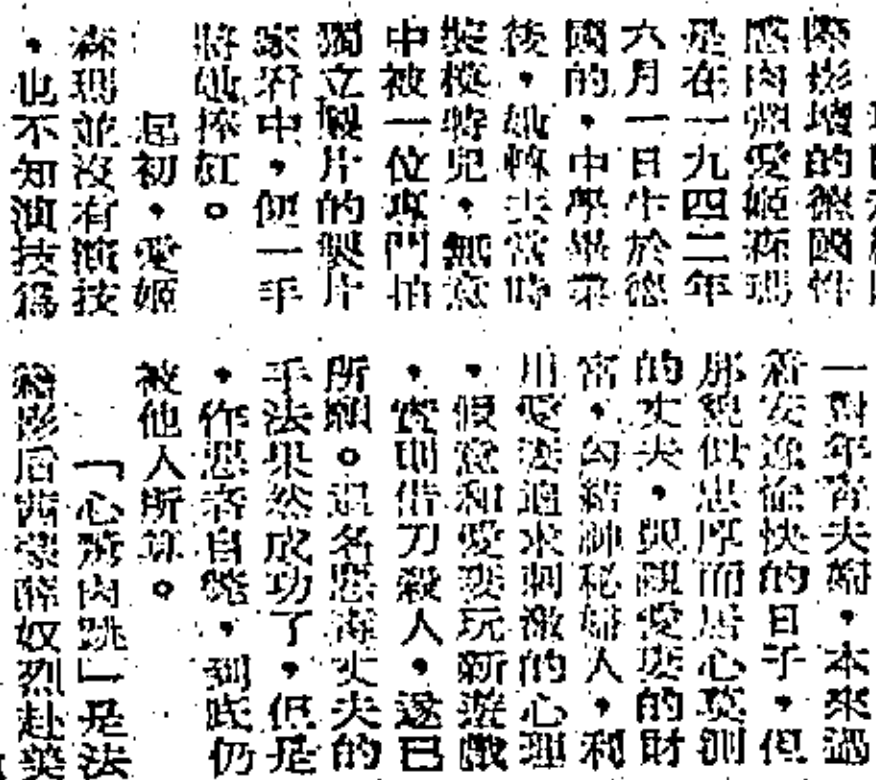 際影壇的德國性
感肉彈愛姬森瑪
是在一九四二年
六月一日生於德
國的，中學畢業
後，她轉去當時
裝模特兒，無意
中被一位專門拍
獨立製片的製片
家看中，便一手
將她捧紅。
起初，愛姬
森瑪並沒有演技
，也不知演技為
一對年青夫婦，本來過
着安逸愉快的日子，但
那貌似忠厚而居心莫測
的丈夫，與覬愛妻的財
富，勾結神秘婦人，利
用愛妻追求刺激的心理
，假意和愛妻玩新遊戲
，實則借刀殺人，遂已
所願。這名惡毒丈夫的
手法果然成功了，但是
，作惡者自斃，到底仍
被他人所算。
「心驚肉跳」是法
籍影后茜蒙薛奴烈赴美